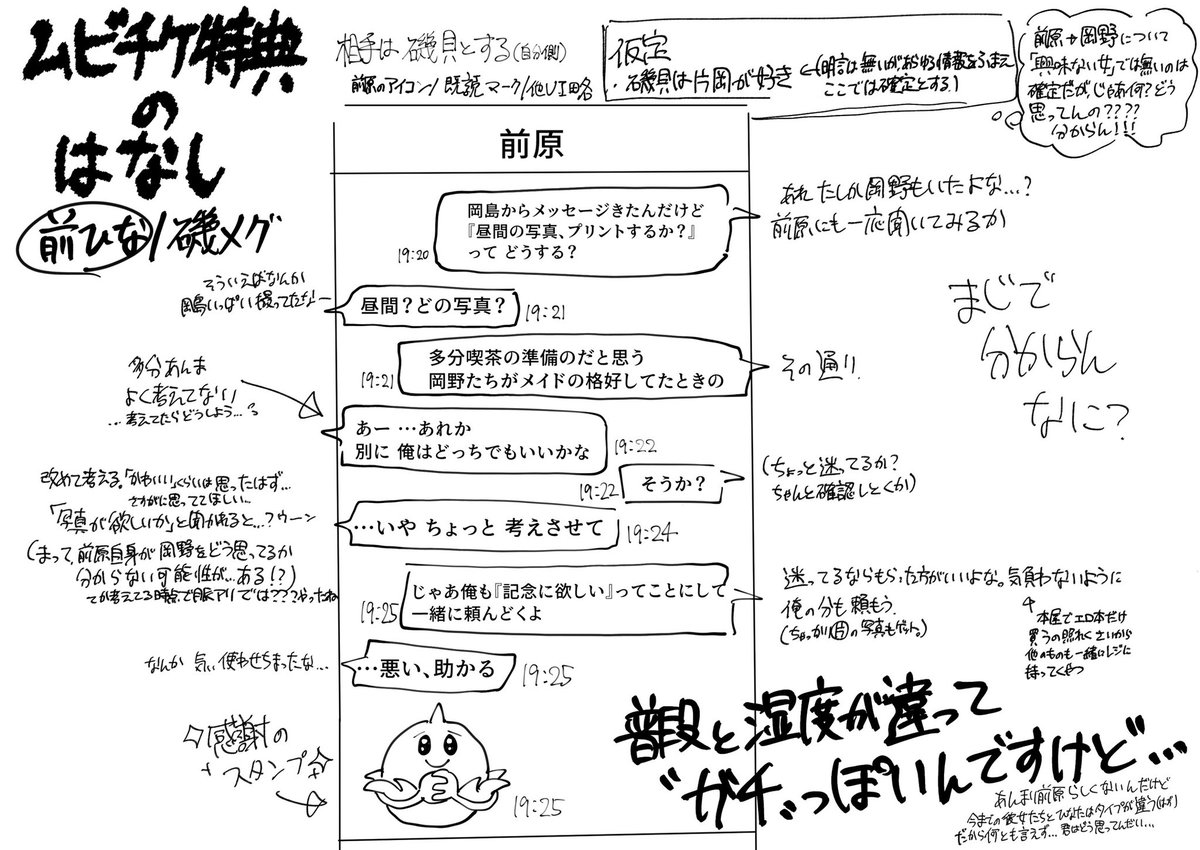 ムビチケ特典
の
はなし
前ひな/磯メグ
相手は磯貝とする(自分側)
前原のアイコン/既読マーク/他UI略
仮定
・磯貝は片岡が好き
←(明言は無いがあらゆる情報をふまえ
ここでは確定とする)
前原→岡野について
「興味ない女」では無いのは
確定だが、じゃあ何?どう
思ってんの????
分からん!!!
前原
岡島からメッセージきたんだけど
『昼間の写真、プリントするか?』
って どうする?
19:20
あれ たしか岡野もいたよな…?
前原にも一応聞いてみるか
そういえばなんか
岡島いっぱい撮ってたなー
昼間?どの写真?
19:21
多分喫茶の準備のだと思う
岡野たちがメイドの格好してたときの
19:21
その通り!
多分あんま
よく考えてない
…考えてたらどうしよう…?
あー …あれか
別に 俺はどっちでもいいかな
19:22
そうか?
19:22
(ちょっと迷ってるか?
ちゃんと確認しとくか)
改めて考える。「かわいい」くらいは思ったはず…
さすがに思っててほしい…
「写真が欲しいか」と聞かれると…?ウーン
(まって、前原自身が岡野をどう思ってるか
分からない可能性が…ある!?)
てか考えてる時点で脈アリでは???やったね
…いや ちょっと 考えさせて
19:24
じゃあ俺も『記念に欲しい』ってことにして
一緒に頼んどくよ
19:25
迷ってるならもらった方がいいよな。気負わないように
俺の分も頼もう。
(ちゃっかり片の写真もゲット。)
本屋でエロ本だけ
買うの照れくさいから
他のものも一緒にレジに
持ってくやつ
なんか 気ぃ使わせちまったな…
…悪い、助かる
19:25
感謝の
スタンプ
19:25
まじで
分からん
なに?
普段と湿度が違って
"ガチ"っぽいんですけど…
あんまり前原らしくないんだけど
今までの彼女たちとひなたはタイプが違う(はず)
だから何とも言えず…君はどう思ってんだい…